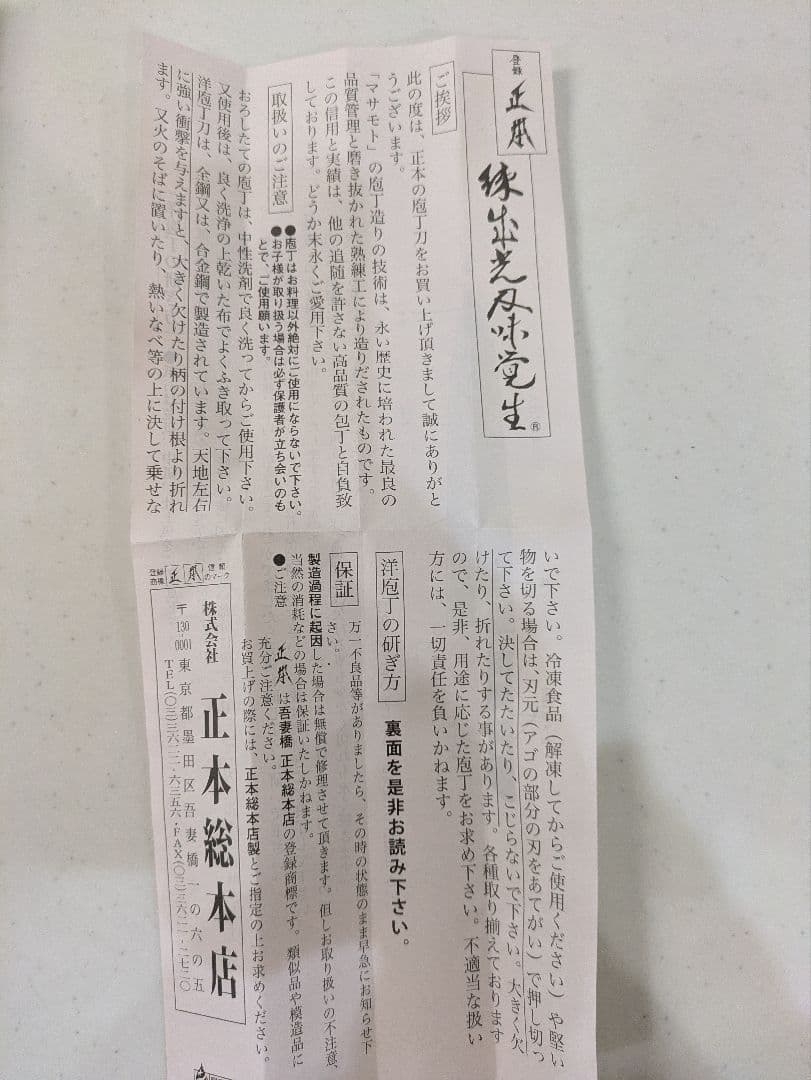 登録 正本
練出光刃味覚生®
ご挨拶
此の度は、正本の庖丁刀をお買い上げ頂きまして誠にありがと
うございます。
「マサモト」の庖丁造りの技術は、永い歴史に培われた最良の
品質管理と磨き抜かれた熟練工により造りだされたものです。
この信用と実績は、他の追随を許さない高品質の包丁と自負致
しております。どうか末永くご愛用下さい。
取扱いのご注意
●庖丁はお料理以外絶対にご使用にならないで下さい。
●お子様が取り扱う場合は必ず保護者が立ち会いのも
とで、ご使用願います。
おろしたての庖丁は、中性洗剤で良く洗ってからご使用下さい。
又使用後は、良く洗浄の上乾いた布でよくふき取って下さい。
洋庖丁刀は、全鋼又は、合金鋼で製造されています。天地左右
に強い衝撃を与えますと、大きく欠けたり柄の付け根より折れ
ます。又火のそばに置いたり、熱いなべ等の上に決して乗せな
いで下さい。冷凍食品（解凍してからご使用ください）や堅い
物を切る場合は、刃元（アゴの部分の刃をあてがい）で押し切っ
て下さい。決してたたいたり、こじらないで下さい。大きく欠
けたり、折れたりする事があります。各種取り揃えております
ので、是非、用途に応じた庖丁をお求め下さい。不適当な扱い
方には、一切責任を負いかねます。
洋庖丁の研ぎ方
裏面を是非お読み下さい。
保証
万一不良品等がありましたら、その時の状態のまま早急にお知らせ下
さい。
製造過程に起因した場合は無償で修理させて頂きます。但しお取り扱いの不注意、
当然の消耗などの場合は保証いたしかねます。
●ご注意
正本は吾妻橋 正本総本店の登録商標です。類似品や模造品に
充分ご注意ください。
お買上げの際には、正本総本店製とご指定の上お求めください。
登録商標 正本 信頼のマーク
株式会社 正本総本店
〒130-0001 東京都墨田区吾妻橋一の六の五
TEL(〇三)三六二二-六三五六・FAX(〇三)三六二一-二七二〇